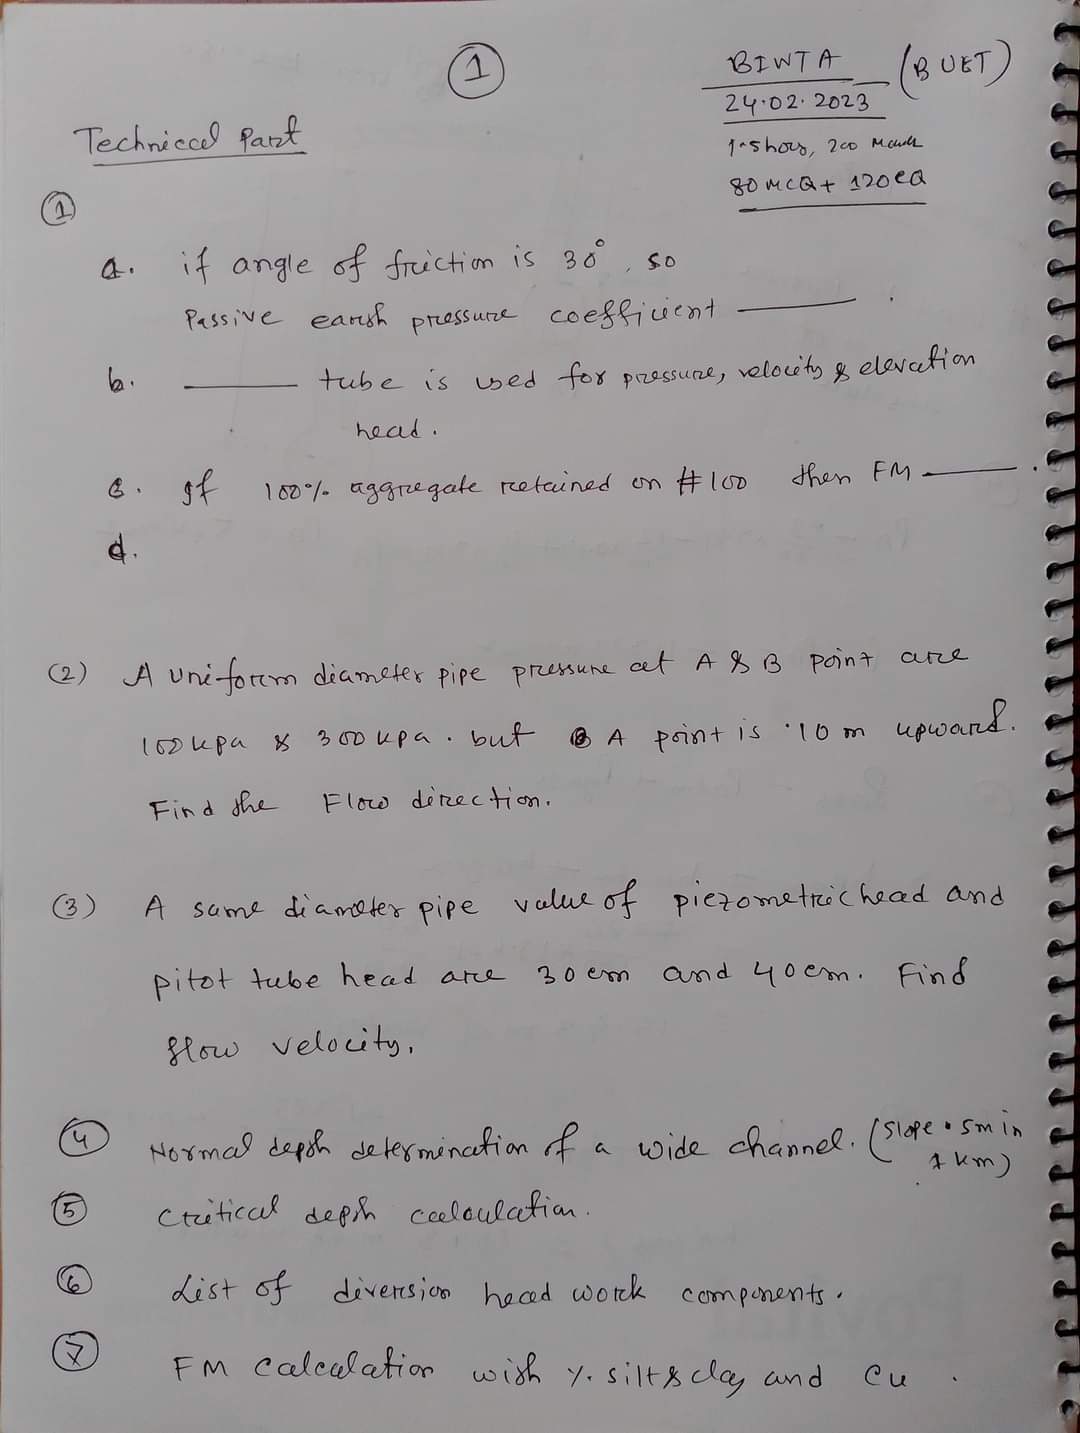 1
BIWTA (BUET)
24.02.2023
1.5 hour, 200 Marks
80 MCQ + 120 CQ
Technical Part
1
a. if angle of friction is 30°, so
Passive earth pressure coefficient ———.
b. ——— tube is used for pressure, velocity & elevation
head.
c. If 100% aggregate retained on #100 then FM ———.
d.
(2) A uniform diameter pipe pressure at A & B point are
100 kpa & 300 kpa. but A point is 10 m upward.
Find the Flow direction.
(3) A same diameter pipe value of piezometric head and
pitot tube head are 30 cm and 40 cm. Find
flow velocity.
4 Normal depth determination of a wide channel. (slope 5m in
1 km)
5 Critical depth calculation.
6 List of diversion head work components.
7 FM calculation with %. silt & clay and Cu.